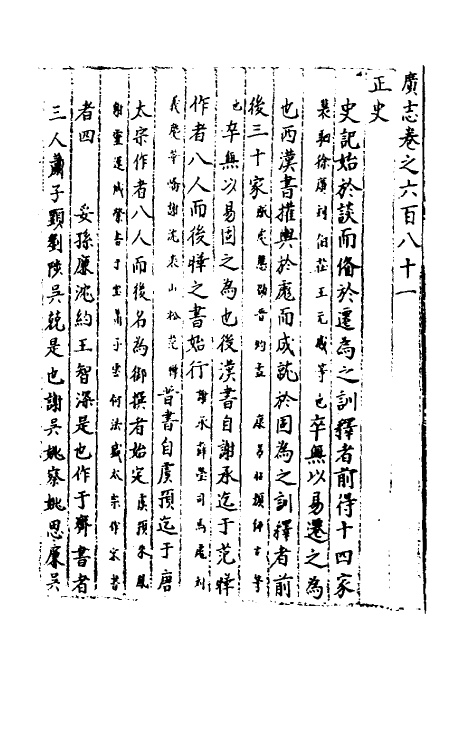 廣志卷之六百八十一
正史
史記始於談而備於遷為之訓釋者前得十四家
裴駰徐廣劉伯莊王元感等也卒無以易遷之為
也西漢書權輿於彪而成就於固為之訓釋者前
後三十家服虔應劭晉灼孟康呂忱顏師古等
也卒無以易固之為也後漢書自謝承迄于范曄
作者八人而後曄之書始行謝承薛瑩司馬彪劉
義慶華嶠謝沈袁山松范曄晉書自虞預迄于唐
太宗作者八人而後名為御撰者始定虞預朱鳳
謝靈運臧榮緒于寶蕭子雲何法盛太宗作宋書
者四 孫嚴沈約王智深是也作于齊書者
三人蕭子顯劉陟吳兢是也謝吳姚察姚思廉吳